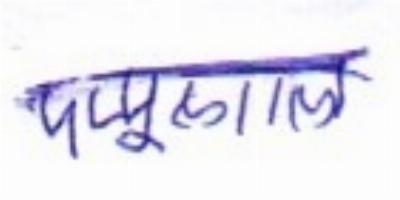 पप्पूलाल